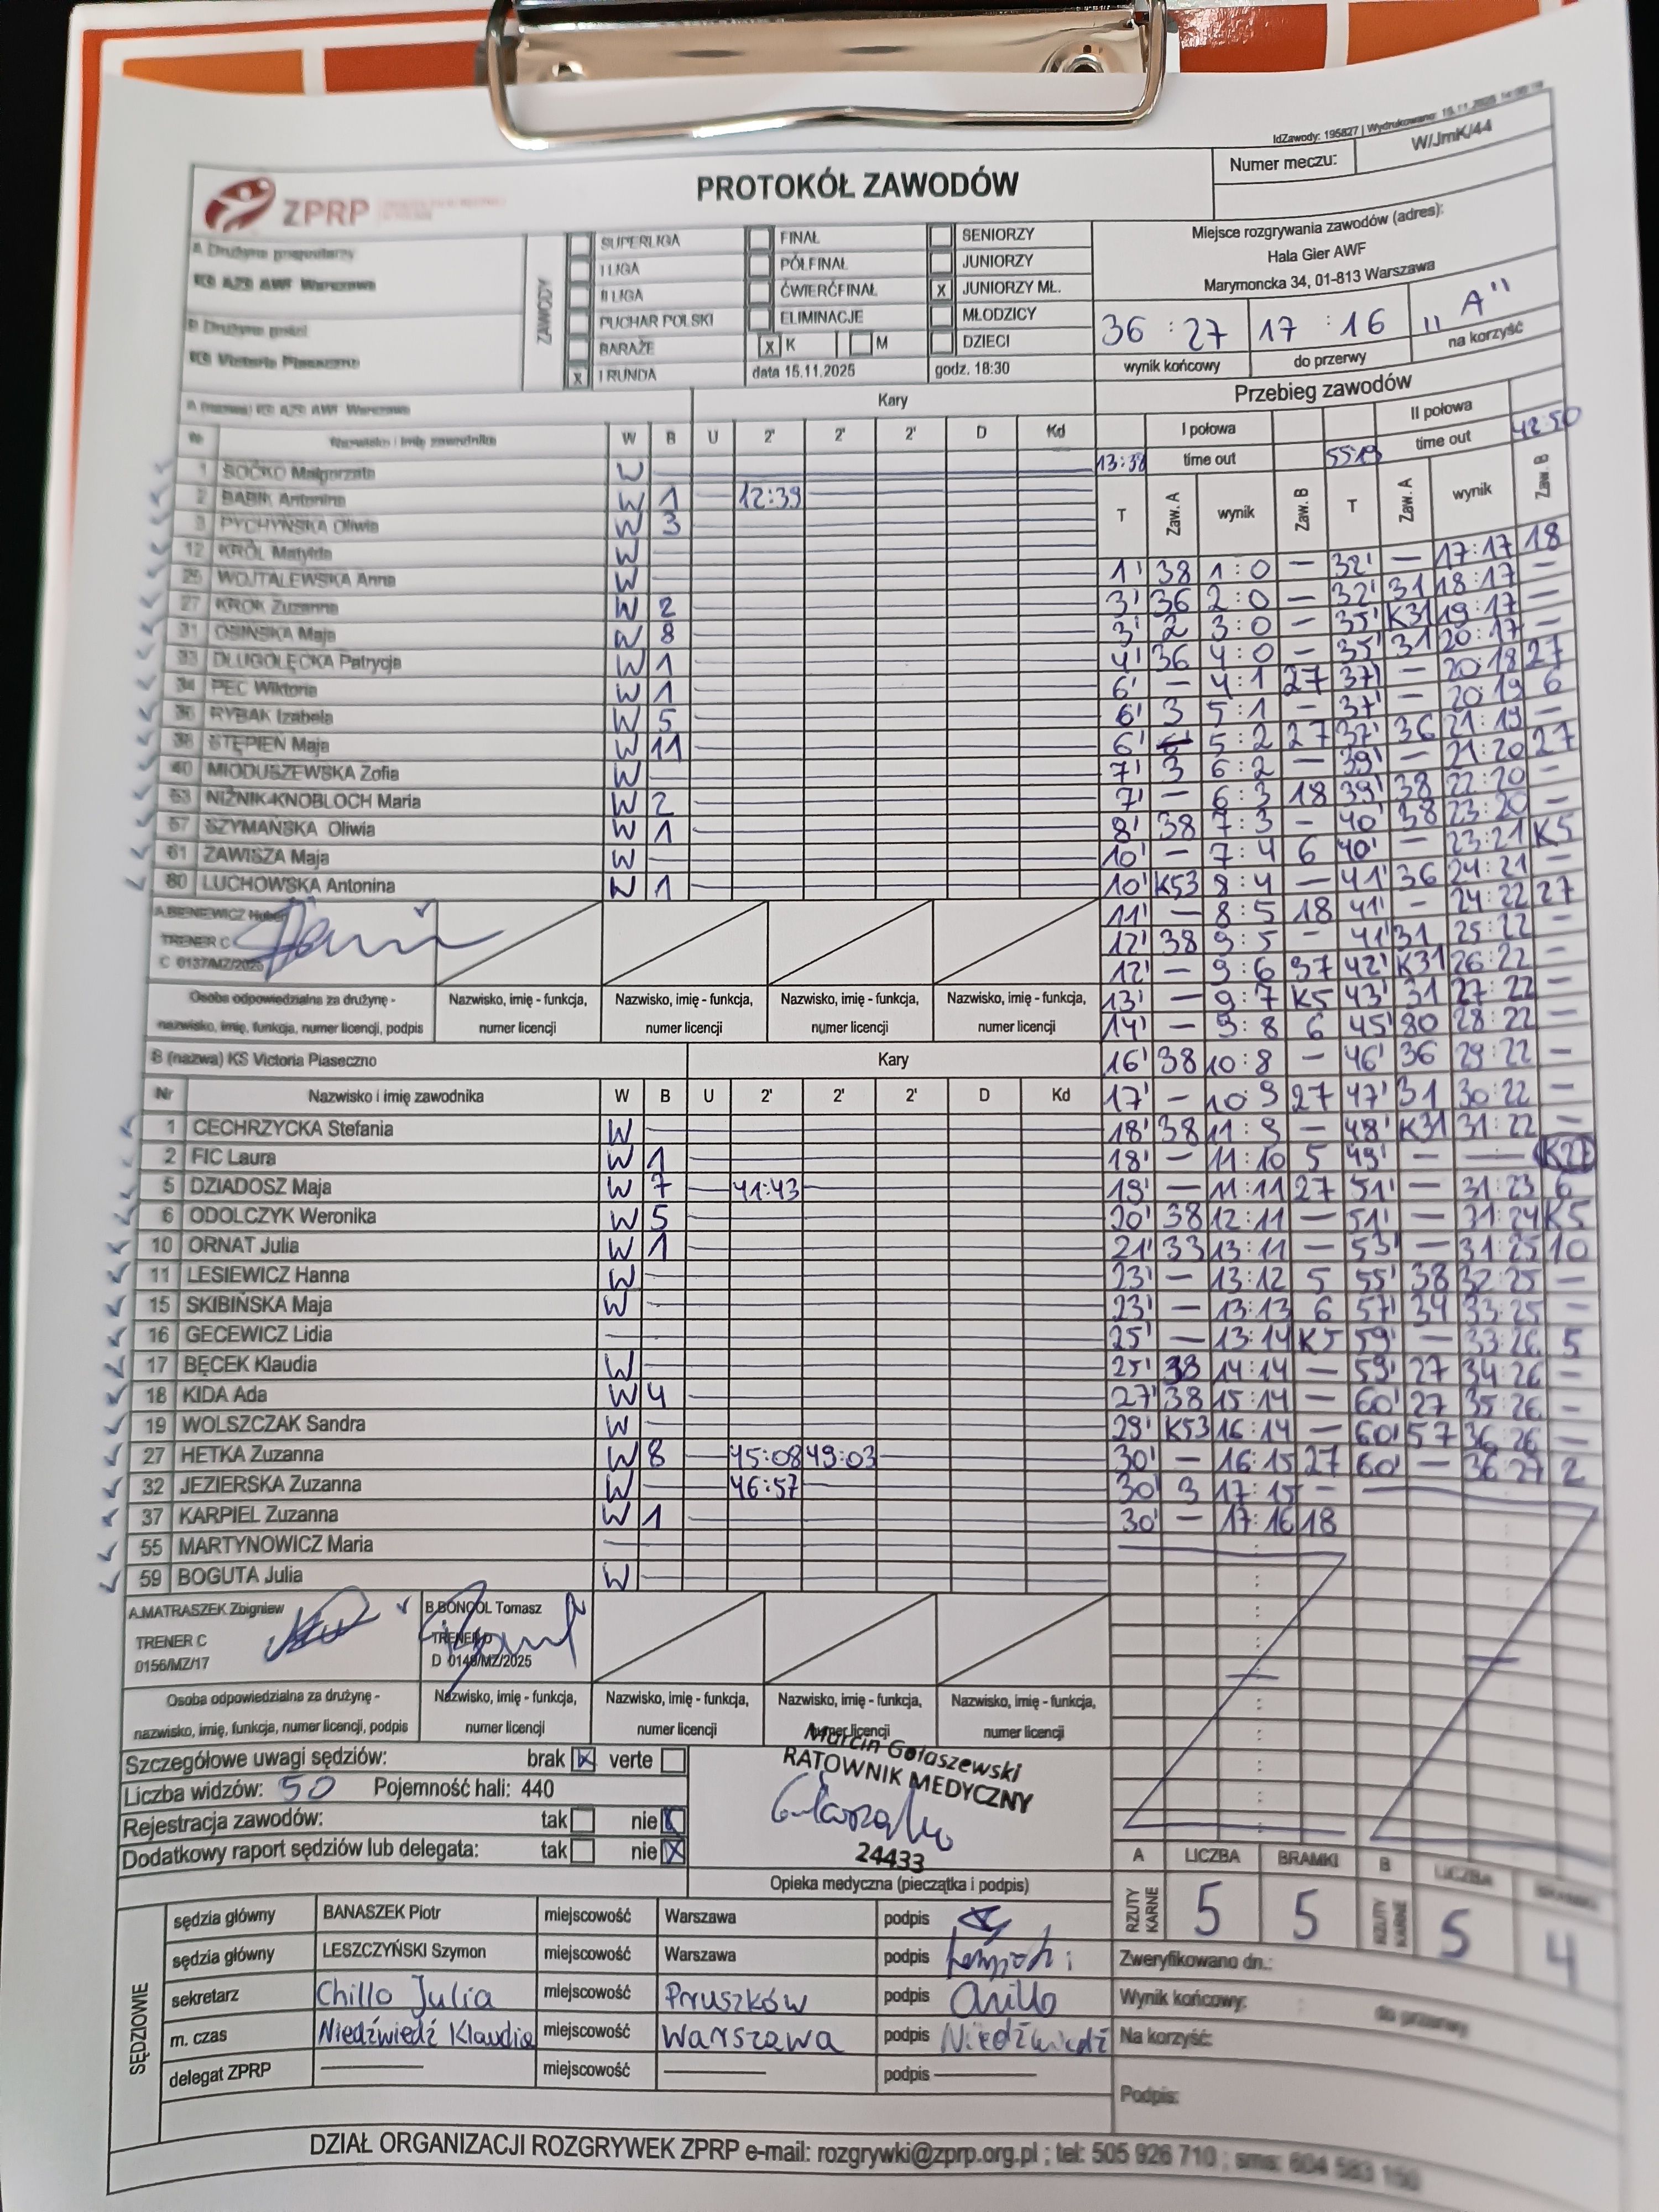 IdZawody: 195827 | Wydrukowano: 15.11.2025
Numer meczu: W/JmK/44
PROTOKÓŁ ZAWODÓW
ZPRP
A Drużyna gospodarzy
KS AZS AWF Warszawa
B Drużyna gości
KS Victoria Piaseczno
ZAWODY
SUPERLIGA FINAŁ SENIORZY
I LIGA PÓŁFINAŁ JUNIORZY
II LIGA ĆWIERĆFINAŁ X JUNIORZY MŁ.
PUCHAR POLSKI ELIMINACJE MŁODZICY
BARAŻE X K M DZIECI
X I RUNDA data 15.11.2025 godz. 18:30
Miejsce rozgrywania zawodów (adres):
Hala Gier AWF
Marymoncka 34, 01-813 Warszawa
36 : 27 17 : 16 "A"
wynik końcowy do przerwy na korzyść
A (nazwa) KS AZS AWF Warszawa Kary
Nr Nazwisko i imię zawodnika W B U 2' 2' 2' D Kd
1 SOĆKO Małgorzata W
2 BABIK Antonina W 1 12:39
3 PYCHYŃSKA Oliwia W 3
12 KRÓL Matylda W
25 WOJTALEWSKA Anna W
27 KROK Zuzanna W 2
31 OSIŃSKA Maja W 8
33 DŁUGOŁĘCKA Patrycja W 1
34 PEC Wiktoria W 1
36 RYBAK Izabela W 5
38 STĘPIEŃ Maja W 11
40 MIODUSZEWSKA Zofia W
53 NIŻNIK-KNOBLOCH Maria W 2
57 SZYMAŃSKA Oliwia W 1
61 ZAWISZA Maja W
80 LUCHOWSKA Antonina W 1
A.BIENIEWICZ Hubert
TRENER C
C 0137/MZ/2025
Osoba odpowiedzialna za drużynę - Nazwisko, imię - funkcja, Nazwisko, imię - funkcja, Nazwisko, imię - funkcja, Nazwisko, imię - funkcja,
nazwisko, imię, funkcja, numer licencji, podpis numer licencji numer licencji numer licencji numer licencji
B (nazwa) KS Victoria Piaseczno Kary
Nr Nazwisko i imię zawodnika W B U 2' 2' 2' D Kd
1 CECHRZYCKA Stefania W
2 FIC Laura W 1
5 DZIADOSZ Maja W 7 41:43
6 ODOLCZYK Weronika W 5
10 ORNAT Julia W 1
11 LESIEWICZ Hanna W
15 SKIBIŃSKA Maja W
16 GECEWICZ Lidia
17 BĘCEK Klaudia W
18 KIDA Ada W 4
19 WOLSZCZAK Sandra W
27 HETKA Zuzanna W 8 45:08 49:03
32 JEZIERSKA Zuzanna W 46:57
37 KARPIEL Zuzanna W 1
55 MARTYNOWICZ Maria
59 BOGUTA Julia W
A.MATRASZEK Zbigniew B.BONCOL Tomasz
TRENER C TRENER D
0156/MZ/17 D 0148/MZ/2025
Osoba odpowiedzialna za drużynę - Nazwisko, imię - funkcja, Nazwisko, imię - funkcja, Nazwisko, imię - funkcja, Nazwisko, imię - funkcja,
nazwisko, imię, funkcja, numer licencji, podpis numer licencji numer licencji numer licencji numer licencji
Przebieg zawodów
I połowa II połowa
13:38 time out 55:19 time out 42:50
T Zaw. A wynik Zaw. B T Zaw. A wynik Zaw. B
1' 38 1:0 — 32' — 17:17 18
3' 36 2:0 — 32' 31 18:17 —
3' 2 3:0 — 35' K31 19:17 —
4' 36 4:0 — 35' 31 20:17 —
6' — 4:1 27 37' — 20:18 27
6' 3 5:1 — 37' — 20:19 6
6' — 5:2 27 37' 36 21:19 —
7' 3 6:2 — 39' — 21:20 27
7' — 6:3 18 39' 38 22:20 —
8' 38 7:3 — 40' 38 23:20 —
10' — 7:4 6 40' — 23:21 K5
10' K53 8:4 — 41' 36 24:21 —
11' — 8:5 18 41' — 24:22 27
12' 38 9:5 — 41' 31 25:22 —
12' — 9:6 37 42' K31 26:22 —
13' — 9:7 K5 43' 31 27:22 —
14' — 9:8 6 45' 80 28:22 —
16' 38 10:8 — 46' 36 29:22 —
17' — 10:9 27 47' 31 30:22 —
18' 38 11:9 — 48' K31 31:22 —
18' — 11:10 5 49' — — K27
19' — 11:11 27 51' — 31:23 6
20' 38 12:11 — 51' — 31:24 K5
21' 33 13:11 — 53' — 31:25 10
23' — 13:12 5 55' 38 32:25 —
23' — 13:13 6 57' 34 33:25 —
25' — 13:14 K5 59' — 33:26 5
25' 38 14:14 — 59' 27 34:26 —
27' 38 15:14 — 60' 27 35:26 —
29' K53 16:14 — 60' 57 36:26 —
30' — 16:15 27 60' — 36:27 2
30' 3 17:15 —
30' — 17:16 18
Szczegółowe uwagi sędziów: brak X verte
Liczba widzów: 50 Pojemność hali: 440
Rejestracja zawodów: tak nie X
Dodatkowy raport sędziów lub delegata: tak nie X
Marcin Gołaszewski
RATOWNIK MEDYCZNY
24433
Opieka medyczna (pieczątka i podpis)
A LICZBA BRAMKI B LICZBA BRAMKI
RZUTY KARNE 5 5 RZUTY KARNE 5 4
SĘDZIOWIE
sędzia główny BANASZEK Piotr miejscowość Warszawa podpis
sędzia główny LESZCZYŃSKI Szymon miejscowość Warszawa podpis
sekretarz Chillo Julia miejscowość Pruszków podpis Chillo
m. czas Niedźwiedź Klaudia miejscowość Warszawa podpis Niedźwiedź
delegat ZPRP — miejscowość — podpis —
Zweryfikowano dn.:
Wynik końcowy: : do przerwy
Na korzyść:
Podpis:
DZIAŁ ORGANIZACJI ROZGRYWEK ZPRP e-mail: rozgrywki@zprp.org.pl ; tel: 505 926 710 ; sms: 604 583 150